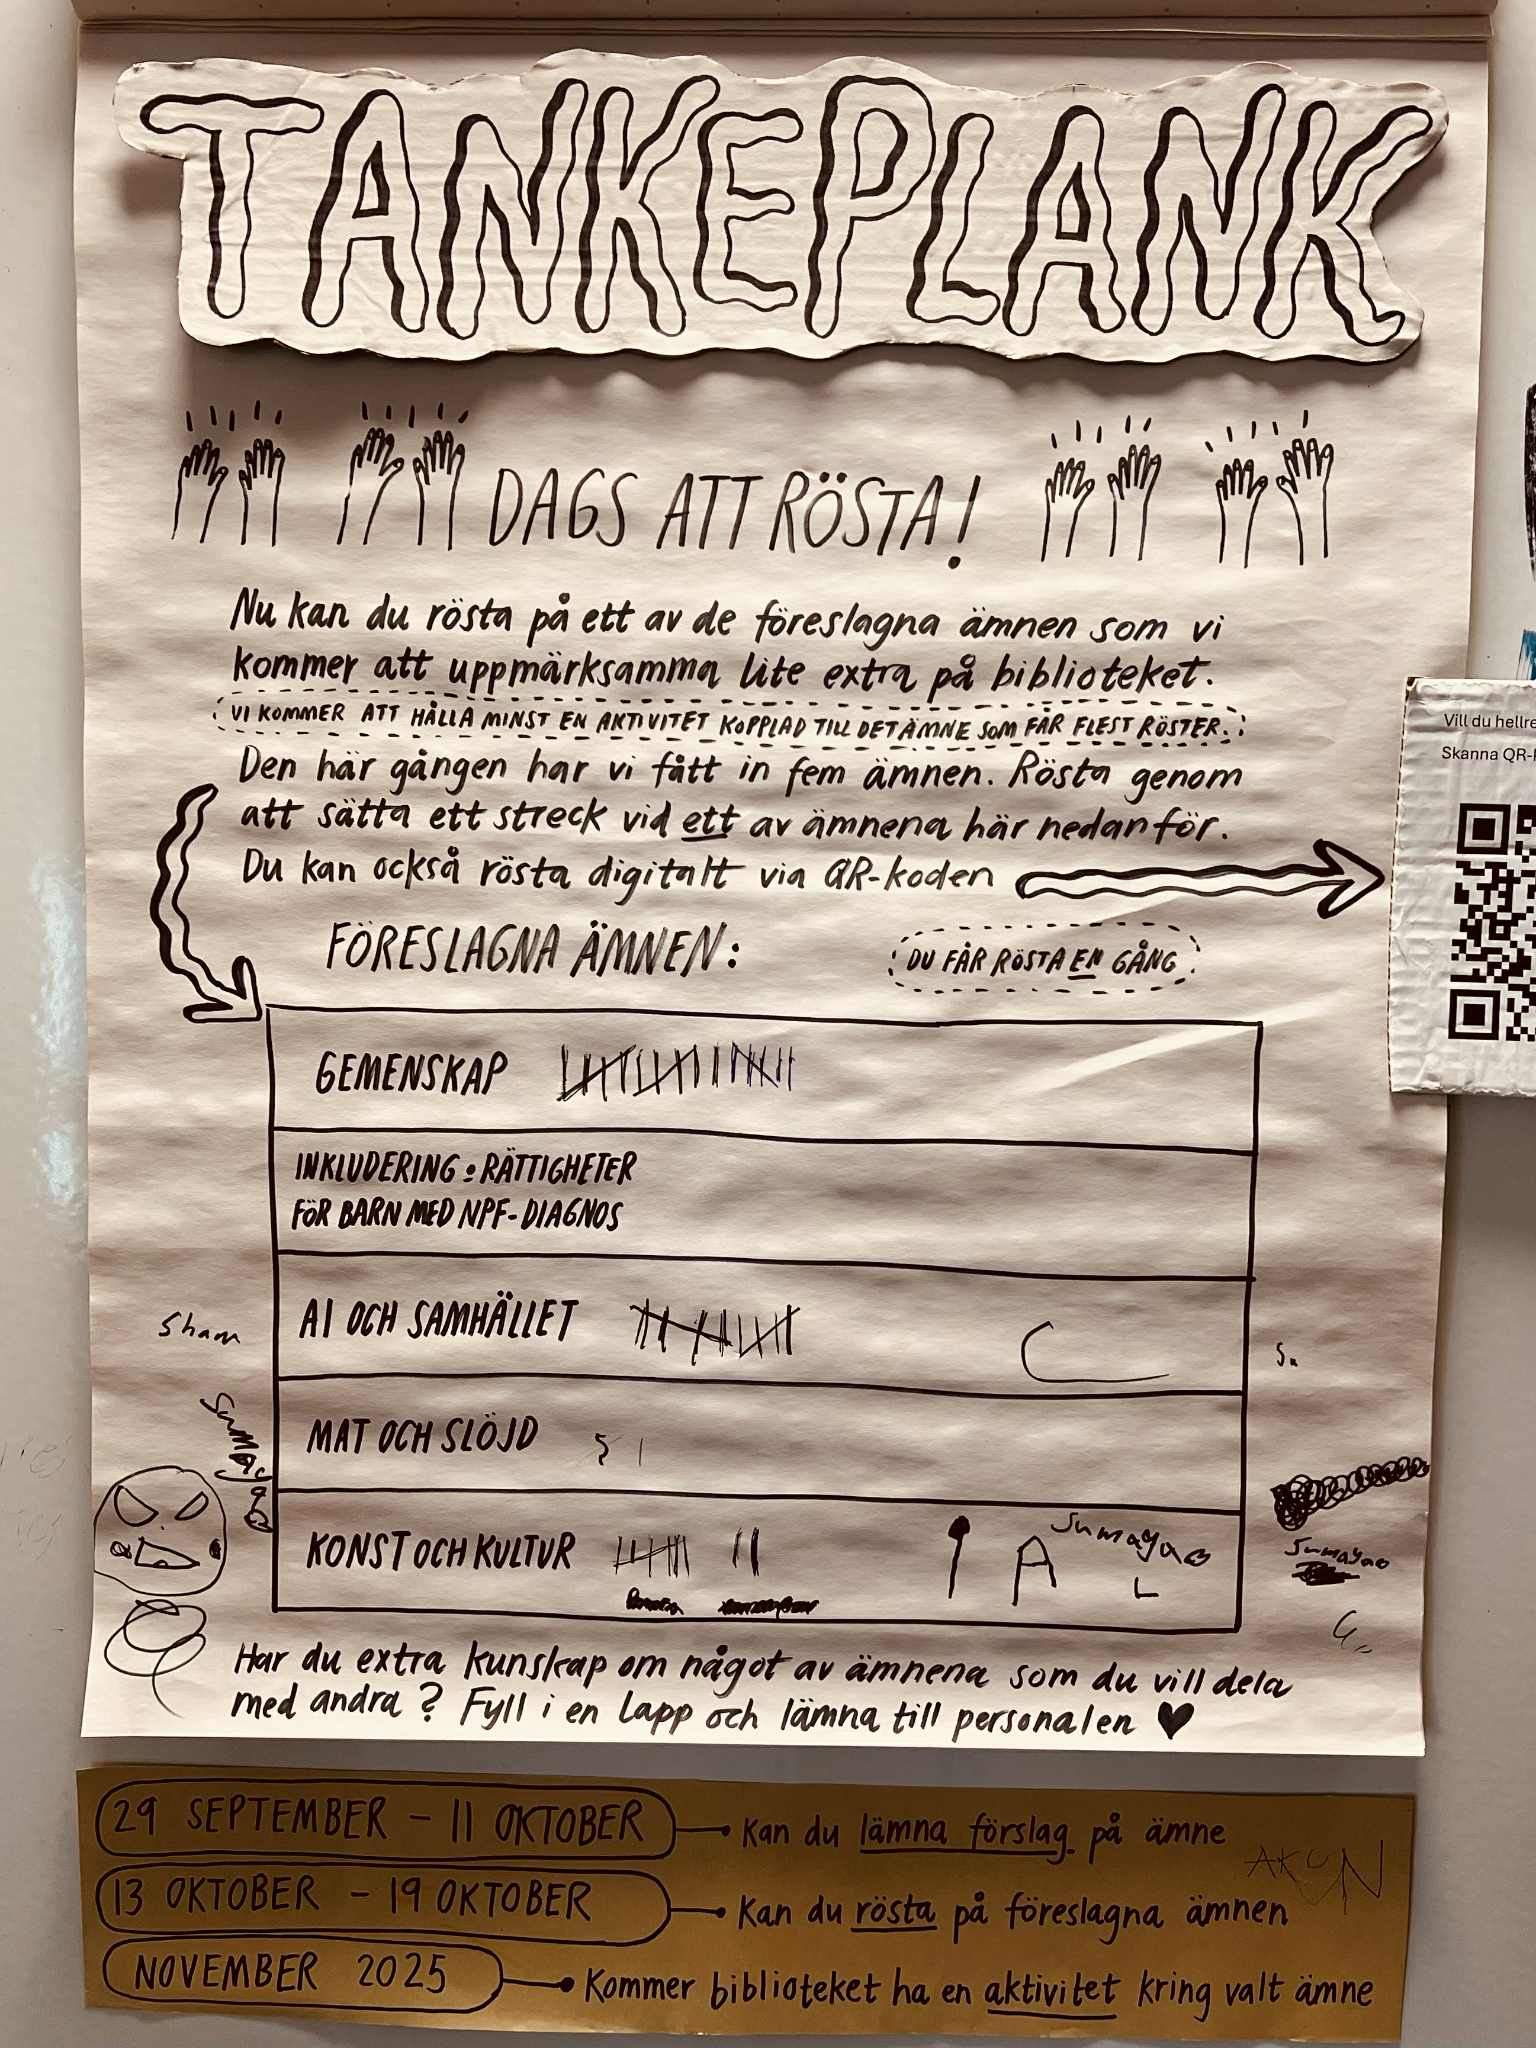 TANKEPLANK
DAGS ATT RÖSTA!
Nu kan du rösta på ett av de föreslagna ämnen som vi
kommer att uppmärksamma lite extra på biblioteket.
VI KOMMER ATT HÅLLA MINST EN AKTIVITET KOPPLAD TILL DET ÄMNE SOM FÅR FLEST RÖSTER.
Den här gången har vi fått in fem ämnen. Rösta genom
att sätta ett streck vid ett av ämnena här nedanför.
Du kan också rösta digitalt via QR-koden
Vill du hellre
Skanna QR-
FÖRESLAGNA ÄMNEN:
DU FÅR RÖSTA EN GÅNG
GEMENSKAP
INKLUDERING & RÄTTIGHETER
FÖR BARN MED NPF-DIAGNOS
AI OCH SAMHÄLLET
Sham
Su
MAT OCH SLÖJD
Sumayao
KONST OCH KULTUR
A
Sumayao
L
Sumayao
Har du extra kunskap om något av ämnena som du vill dela
med andra? Fyll i en lapp och lämna till personalen ♥
29 SEPTEMBER - 11 OKTOBER
Kan du lämna förslag på ämne
13 OKTOBER - 19 OKTOBER
Kan du rösta på föreslagna ämnen
NOVEMBER 2025
Kommer biblioteket ha en aktivitet kring valt ämne